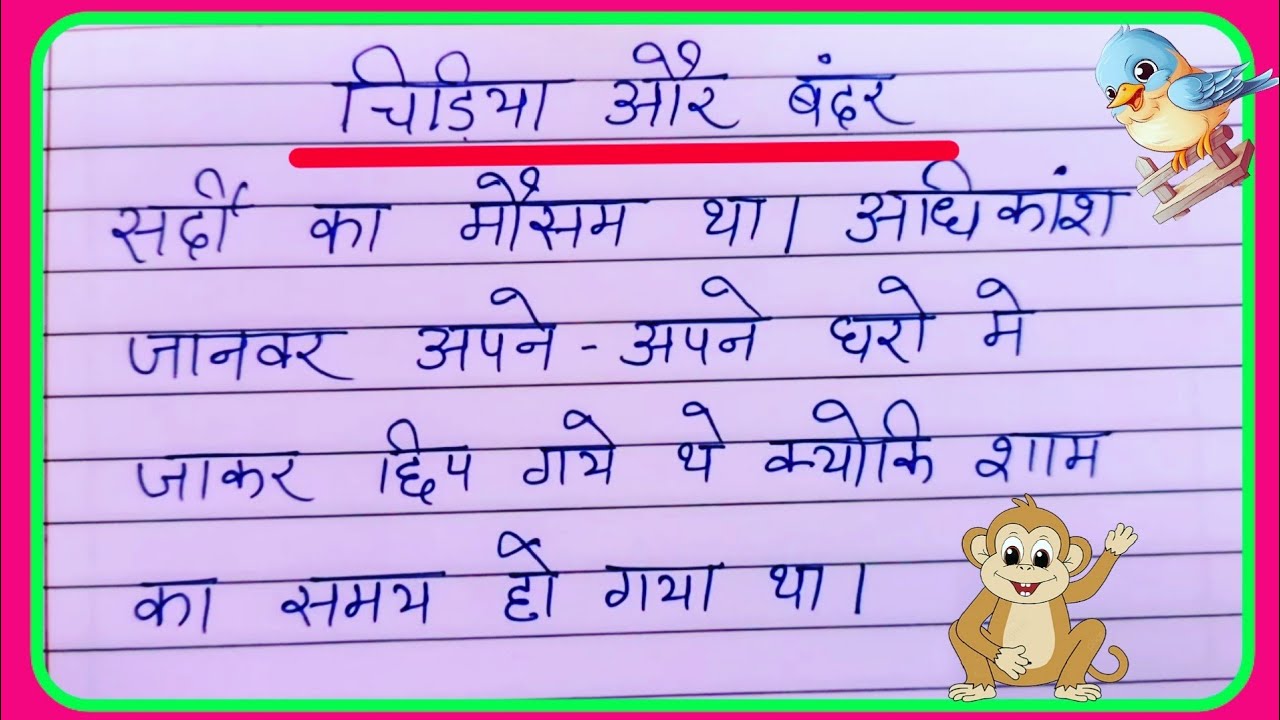 चिड़िया और बंदर
सर्दी का मौसम था। अधिकांश
जानवर अपने - अपने घरो मे
जाकर छिप गये थे क्योकि शाम
का समय हो गया था।